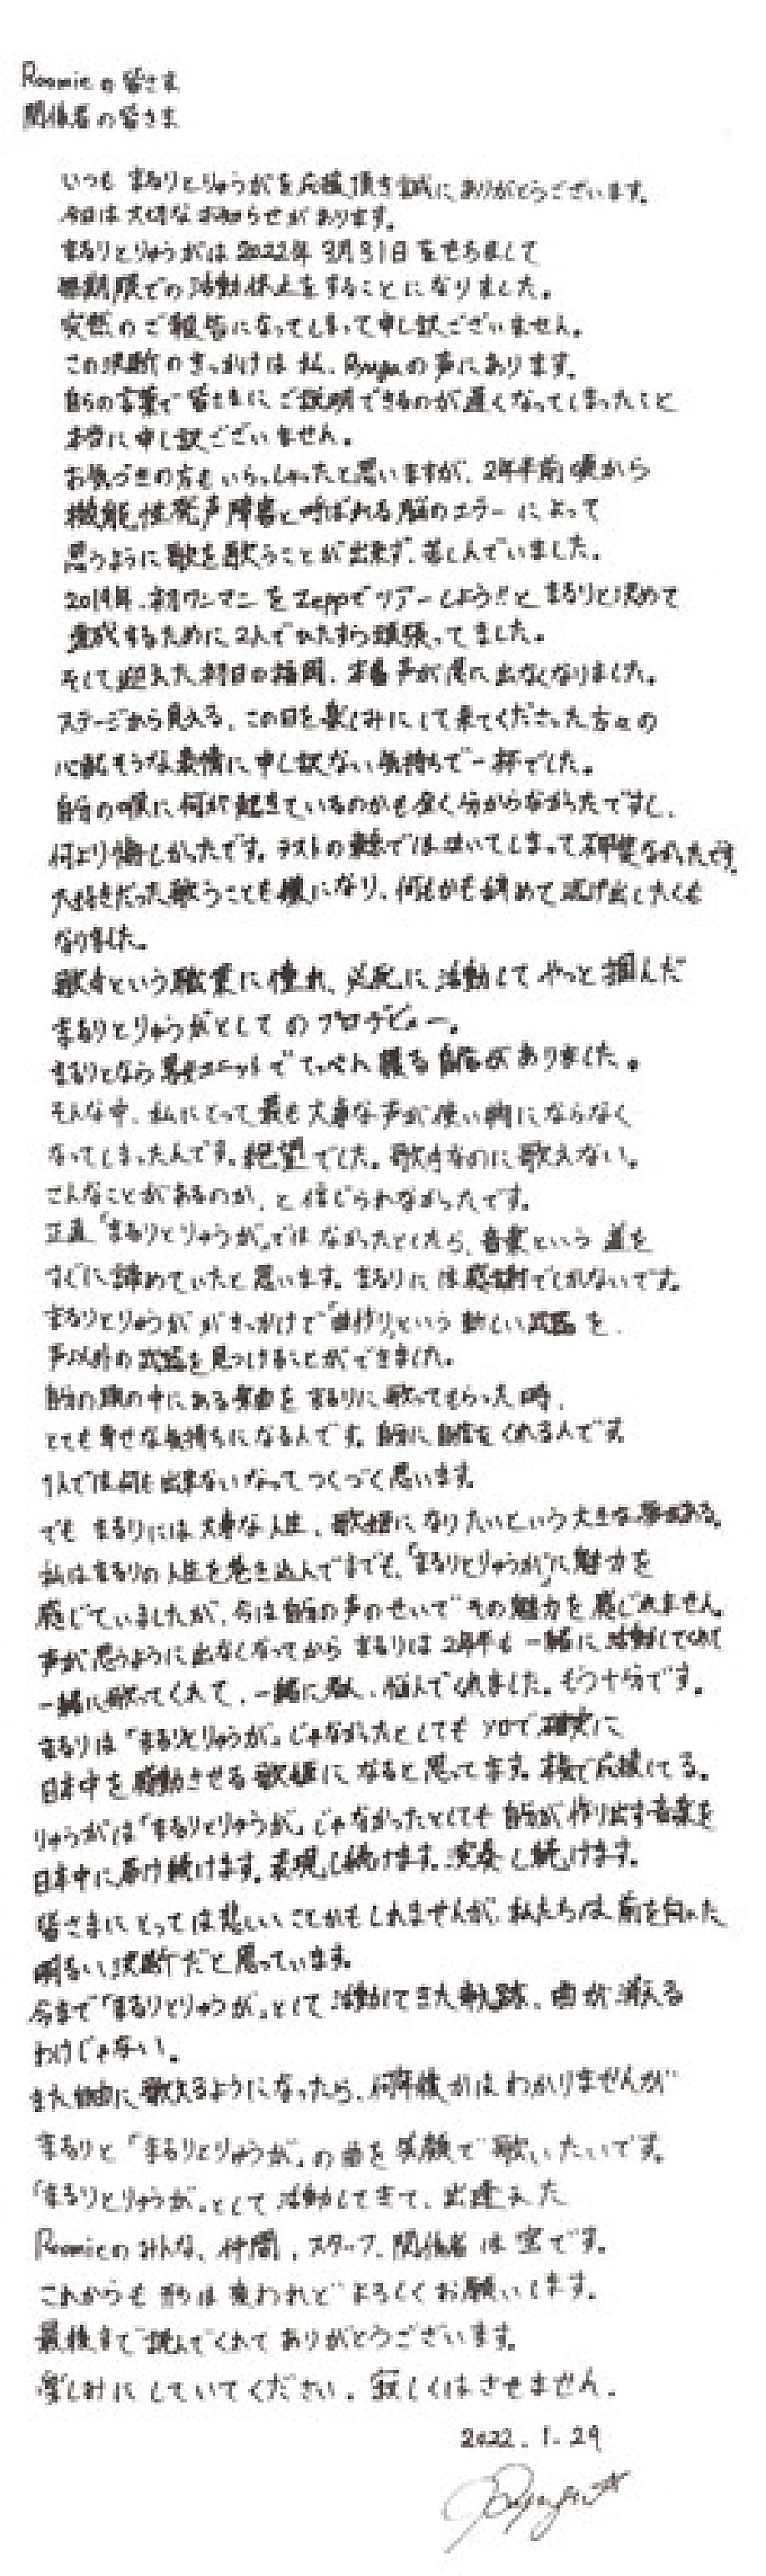 Roomieの皆さま
関係者の皆さま
いつも まるりとりゅうがを応援頂き誠にありがとうございます。
今日は大切なお知らせがあります。
まるりとりゅうがは2022年3月31日をもちまして
無期限での活動休止をすることになりました。
突然のご報告になってしまって申し訳ございません。
この決断のきっかけは私、Ryugaの声にあります。
自らの言葉で皆さまにご説明できるのが遅くなってしまったこと
本当に申し訳ございません。
お気づきの方もいらっしゃったと思いますが、2年半前頃から
機能性発声障害と呼ばれる脳のエラーによって
思うように歌を歌うことが出来ず、苦しんでいました。
2019年、初ワンマンをZeppでツアーしよう!と まるりと決めて
達成するために2人でひたすら頑張ってました。
そして迎えた初日の福岡、本番声が急に出なくなりました。
ステージから見える、この日を楽しみにして来てくださった方々の
心配そうな表情に申し訳ない気持ちで一杯でした。
自分の喉に何が起きているのかも全く分からなかったですし、
何より悔しかったです。ラストの では泣いてしまって不甲斐なかったです。
大好きだった歌うことも嫌になり、何もかも辞めて逃げ出したくも
なりました。
歌手という職業に憧れ、必死に活動してやっと掴んだ
まるりとりゅうがとしてのプロデビュー。
まるりとなら男女ユニットでてっぺん獲る自信がありました。
そんな中、私にとって最も大事な声が使い物にならなく
なってしまったんです。絶望でした。歌手なのに歌えない。
こんなことがあるのか、と信じられなかったです。
正直「まるりとりゅうが」ではなかったとしたら、音楽という 道を
すぐに諦めていたと思います。まるりには感謝でしかないです。
まるりとりゅうががきっかけで「曲作り」という 新しい武器を、
声以外の武器を見つけることができました。
自分の頭の中にある楽曲をまるりに歌ってもらった時、
とても幸せな気持ちになるんです。自分に自信をくれる人です。
1人では何も出来ないなってつくづく思います。
でも まるりには大事な人生、歌姫になりたいという大きな夢がある。
私はまるりの人生を巻き込んでまでも、「まるりとりゅうが」に魅力を
感じていましたが、今は自分の声のせいでその魅力を感じれません。
声が思うように出なくなってから まるりは2年半も一緒に活動してくれて
一緒に歌ってくれて、一緒に 、悩んでくれました。もう十分です。
まるりは「まるりとりゅうが」じゃなかったとしても ソロで確実に
日本中を感動させる歌姫になると思ってます。本気で応援してる。
りゅうがは「まるりとりゅうが」じゃなかったとしても 自分が作り出す音楽を
日本中に届け続けます。表現し続けます。演奏し続けます。
皆さまにとっては悲しいことかもしれませんが、私たちは前を向いた
明るい決断だと思っています。
今まで「まるりとりゅうが」として活動してきた軌跡、曲が消える
わけじゃない。
また自由に歌えるようになったら、何年後かはわかりませんが
まるりと「まるりとりゅうが」の曲を笑顔で歌いたいです。
「まるりとりゅうが」として活動してきて、出逢えた
Roomieのみんな、仲間、スタッフ、関係者は宝です。
これからも形は変われど よろしくお願いします。
最後まで読んでくれてありがとうございます。
楽しみにしていてください。寂しくはさせません。
2022.1.29
Ryuga